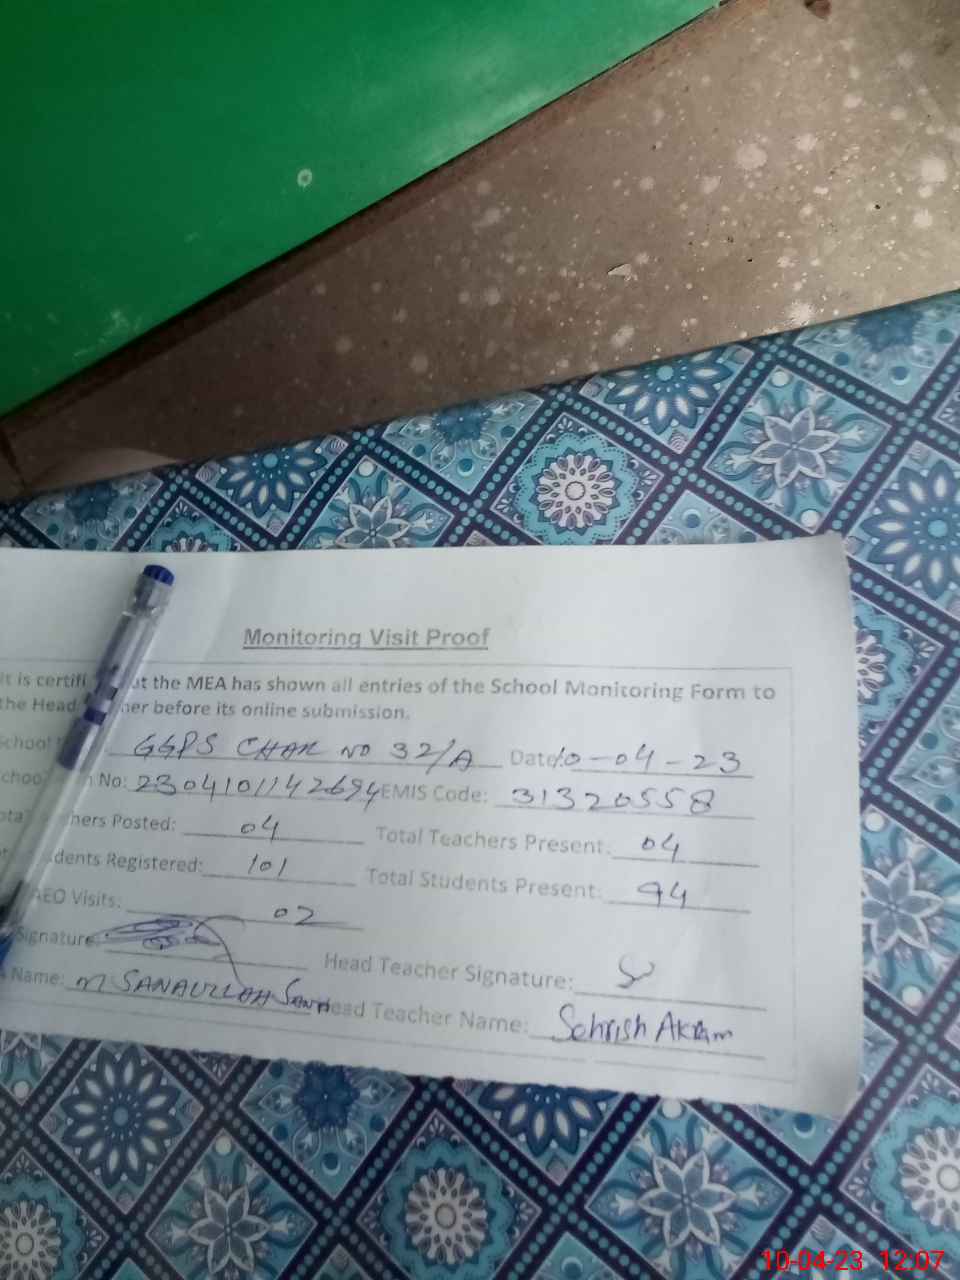 Monitoring Visit Proof
It is certifi at the MEA has shown all entries of the School Monitoring Form to
the Head her before its online submission.
School GGPS CHAK NO 32/A Date: 10-04-23
No: 2304101142694 EMIS Code: 31320558
hers Posted: 04 Total Teachers Present: 04
dents Registered: 101 Total Students Present: 94
AEO Visits: 02
Signature: Head Teacher Signature:
Name: M SANAULLAH Head Teacher Name: Sehrish Akram
10-04-23 12:07